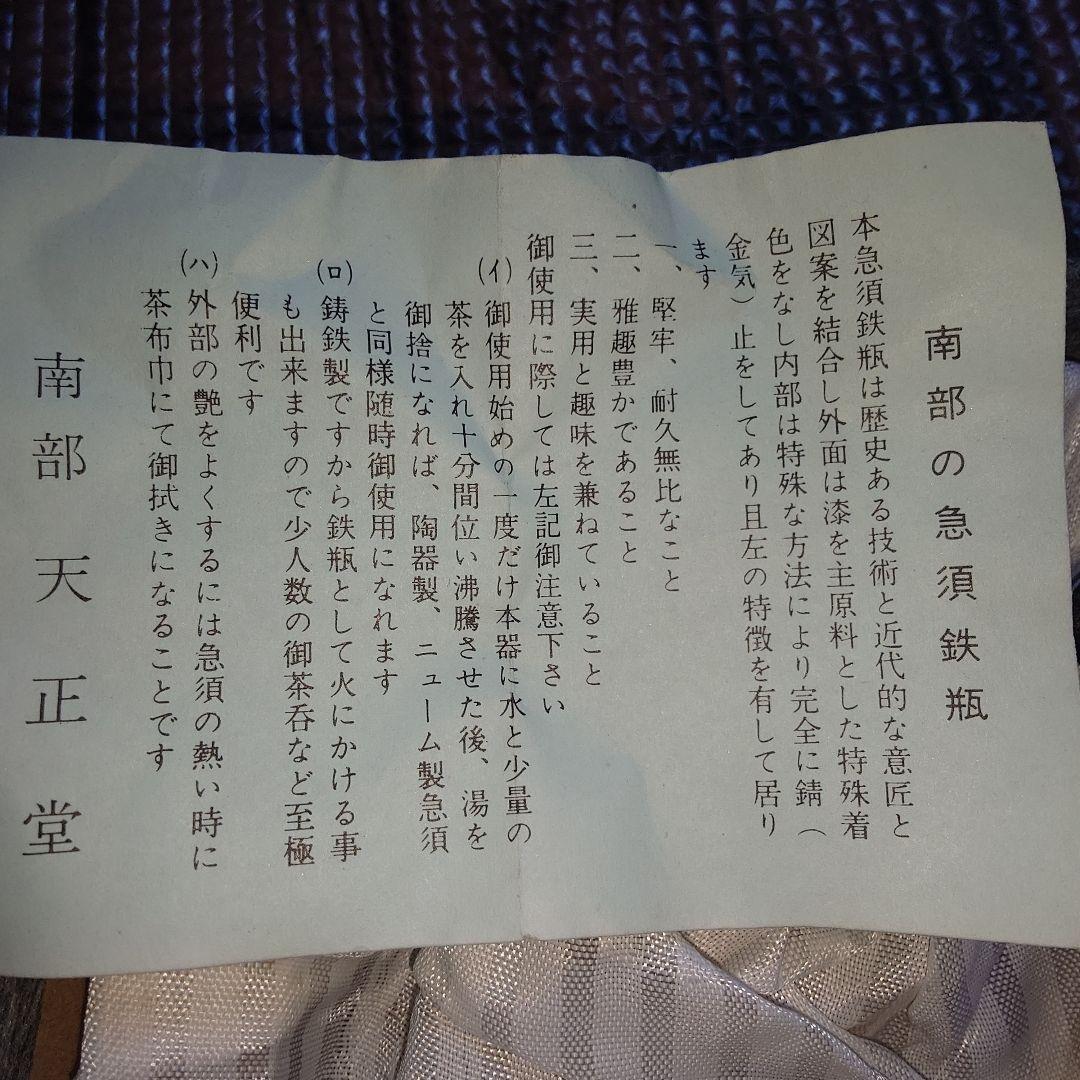 南部の急須鉄瓶
本急須鉄瓶は歴史ある技術と近代的な意匠と
図案を結合し外面は漆を主原料とした特殊着
色をなし内部は特殊な方法により完全に錆（
金気）止をしてあり且左の特徴を有して居り
ます
一、堅牢、耐久無比なこと
二、雅趣豊かであること
三、実用と趣味を兼ねていること
御使用に際しては左記御注意下さい
(イ)御使用始めの一度だけ本器に水と少量の
茶を入れ十分間位い沸騰させた後、湯を
御捨になれば、陶器製、ニューム製急須
と同様随時御使用になれます
(ロ)鋳鉄製ですから鉄瓶として火にかける事
も出来ますので少人数の御茶呑など至極
便利です
(ハ)外部の艶をよくするには急須の熱い時に
茶布巾にて御拭きになることです
南部天正堂